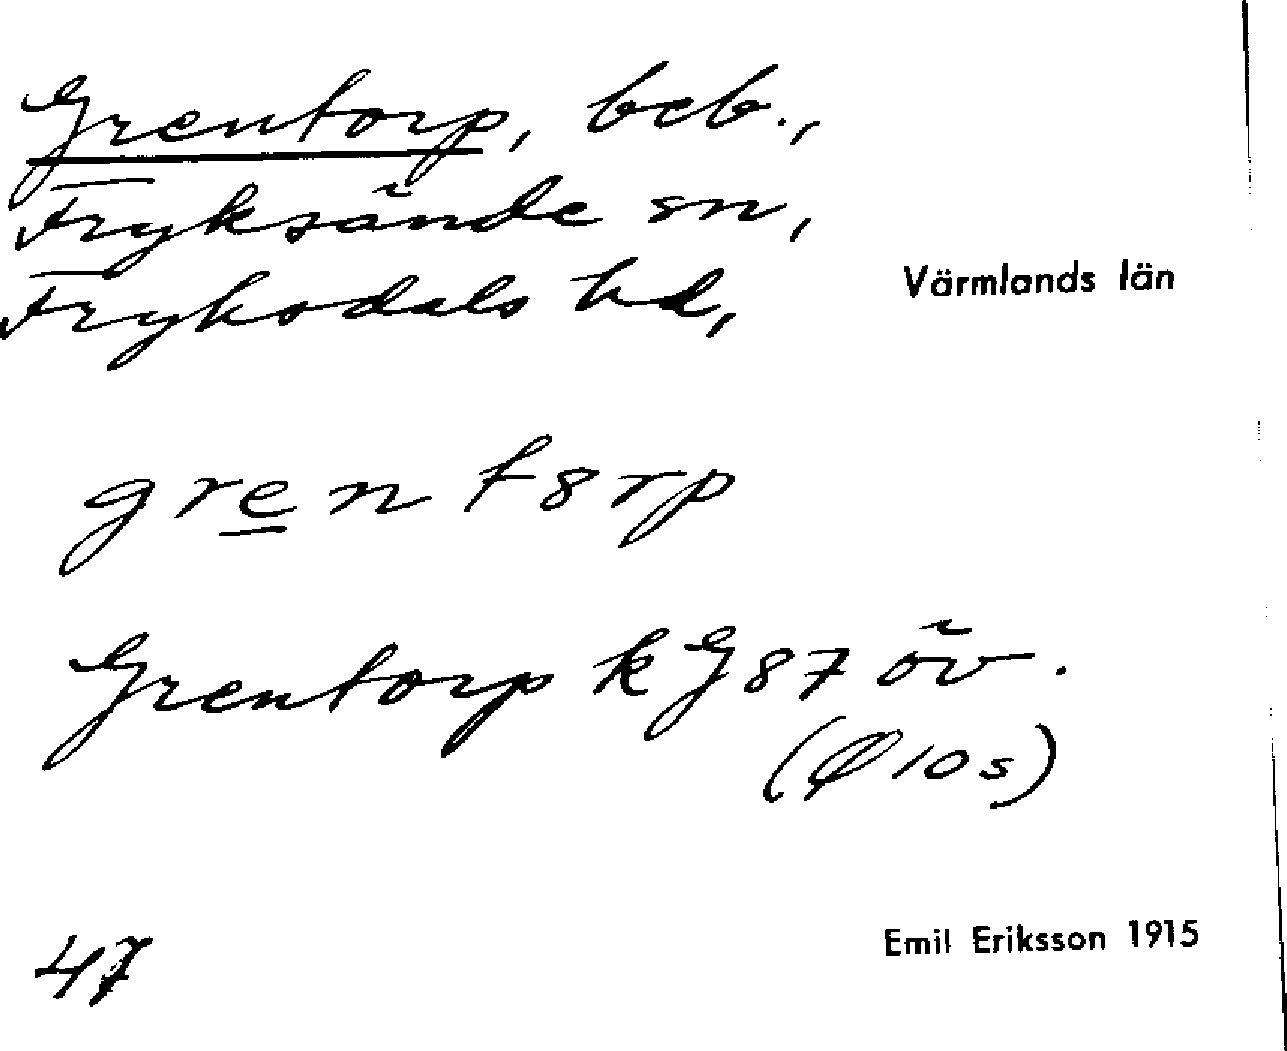 Grentorp, beb.,
Fryksände sn,
Fryksdals hd,
Värmlands län
gren t8rp
Grentorp k G87 öv.
(Ø 10 s)
47
Emil Eriksson 1915